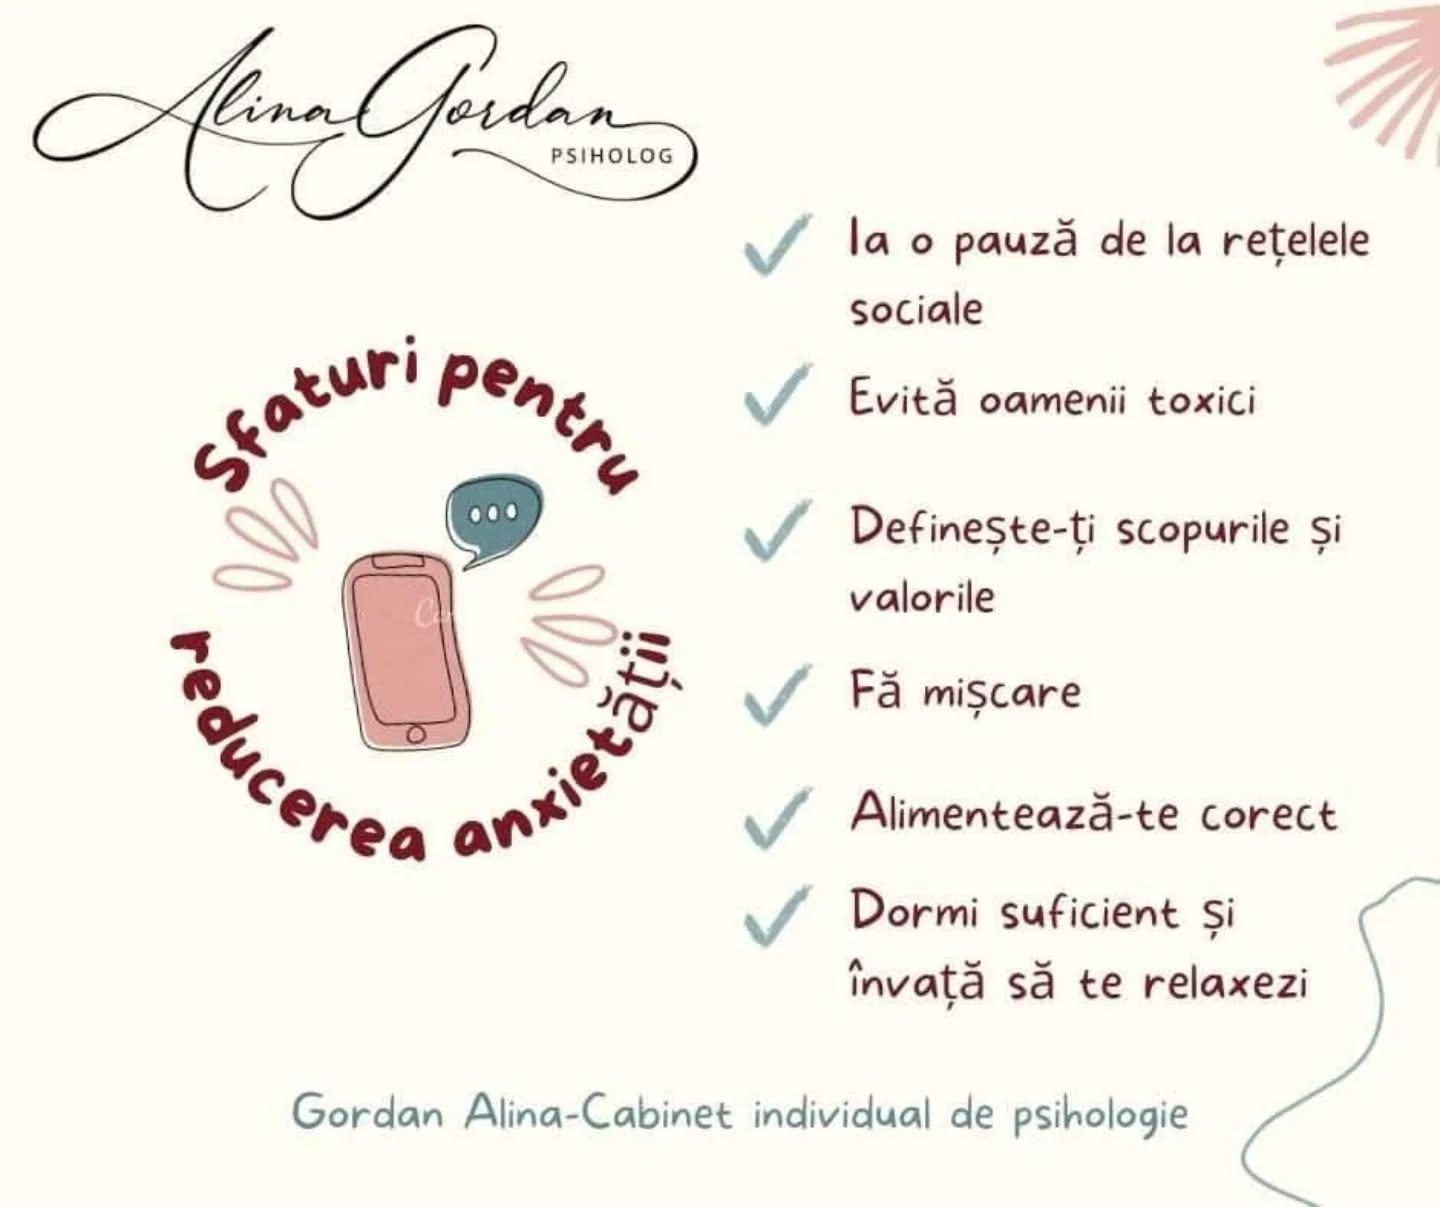 Alina Gordan
PSIHOLOG
Sfaturi pentru
reducerea anxietății
Ia o pauză de la rețelele
sociale
Evită oamenii toxici
Definește-ți scopurile și
valorile
Fă mișcare
Alimentează-te corect
Dormi suficient și
învață să te relaxezi
Gordan Alina-Cabinet individual de psihologie